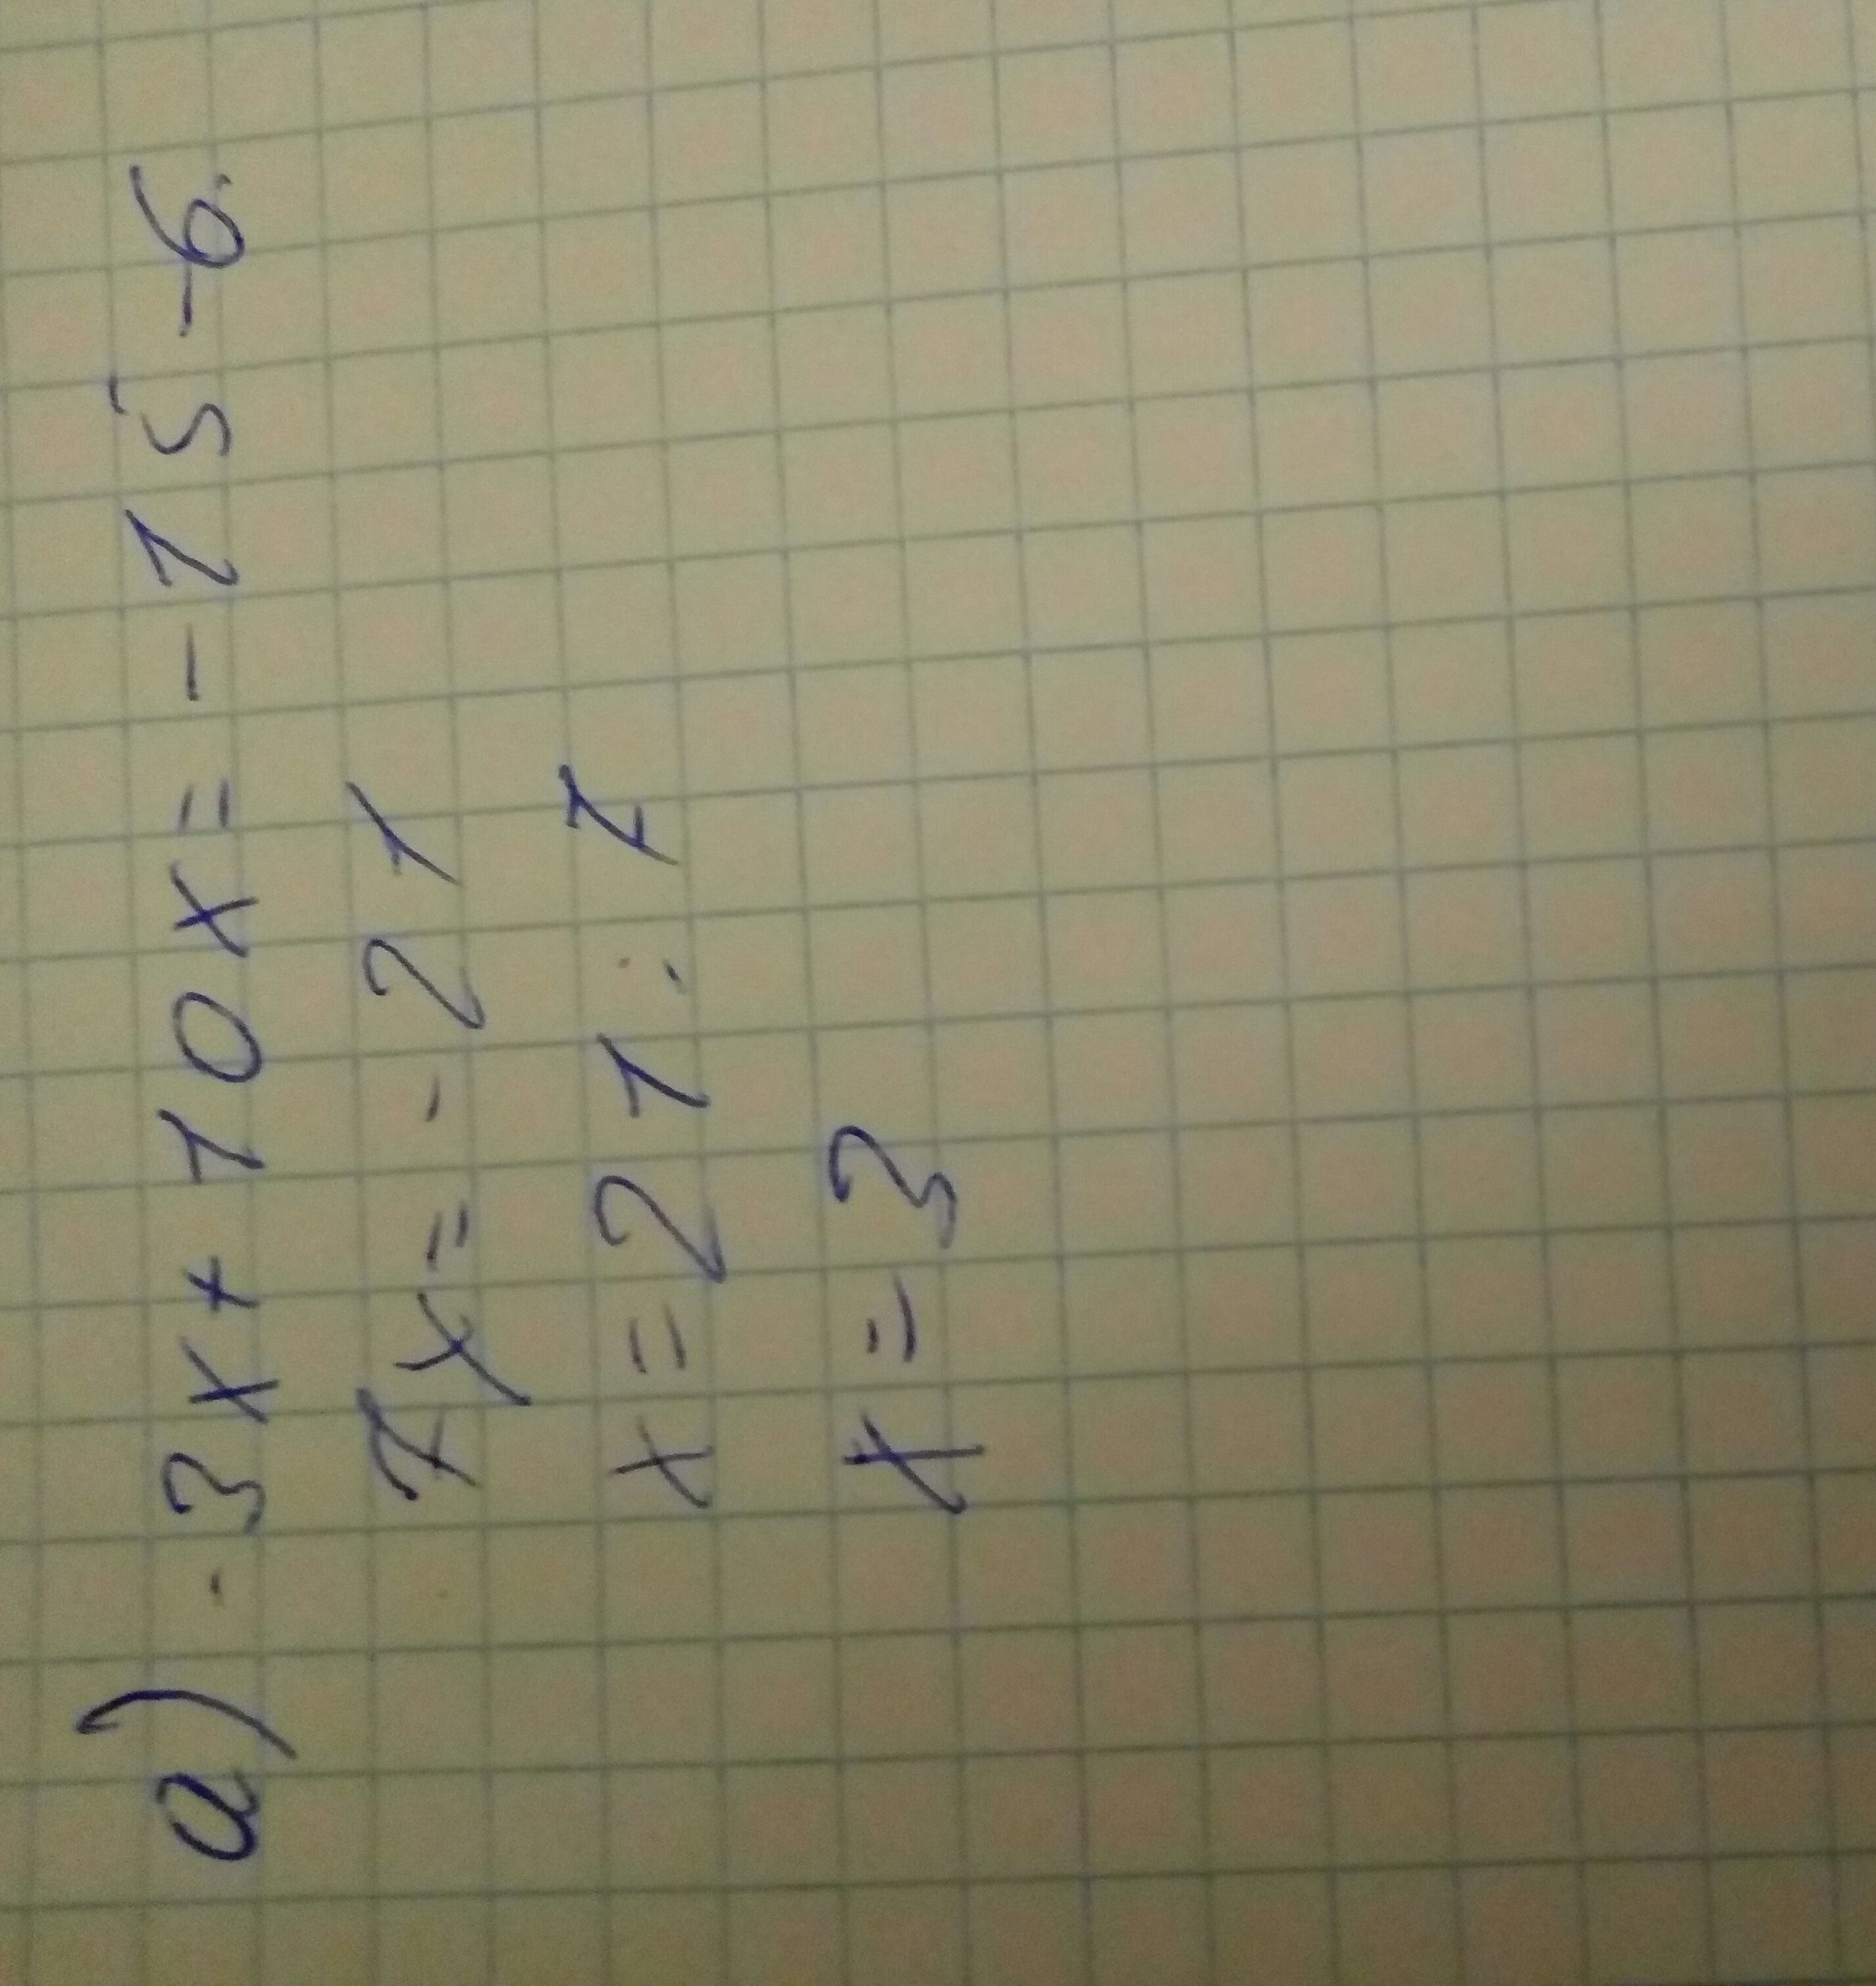 а) -3x+10x=-15-6
7x=-21
x=21:7
x=3